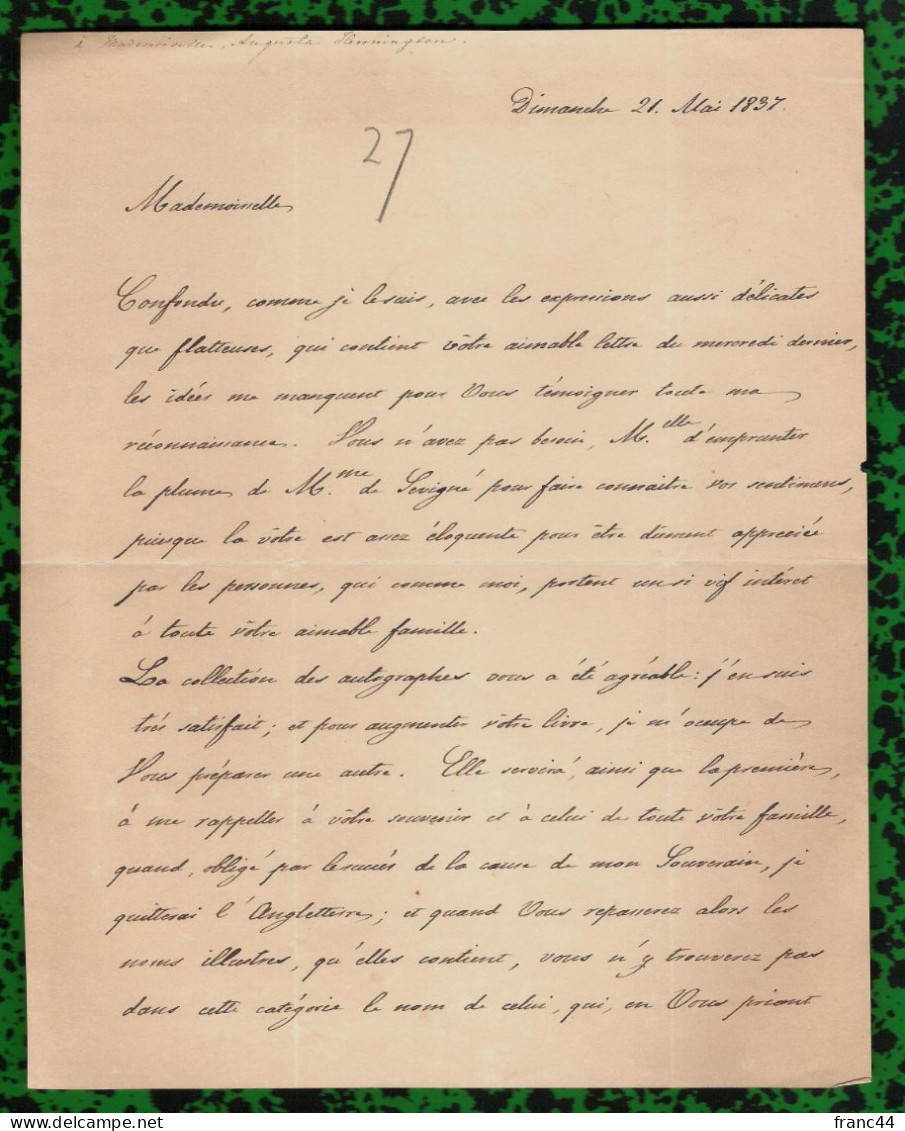 à Mademoiselle, Augusta
Dimanche 21. Mai 1837.
27
Mademoiselle
Confondu, comme je le suis, avec les expressions aussi délicates
que flatteuses, qui contient vôtre aimable lettre du mercredi dernier,
les idées me manquent pour Vous témoigner toute ma
réconnaissance. Vous n'avez pas besoin, M.elle d'emprunter
la plume de M.me de Sevigné pour faire connaitre vos sentimens,
puisque la vôtre est assez éloquente pour être dument appreciée
par les personnes, qui comme moi, portent un si vif intéret
à toute vôtre aimable famille.
La collection des autographes vous a été agréable: j'en suis
trés satisfait; et pour augmenter vôtre livre, je m'ocupe de
Vous préparer une autre. Elle servira, ainsi que la première,
à me rappeller à vôtre souvenir et à celui de toute vôtre famille,
quand, obligé par le succés de la cause de mon Souverain, je
quitterai l'Angleterre; et quand Vous repasserez alors les
noms illustres, qu'elles contient, vous n'y trouverez pas
dans cette catégorie le nom de celui, qui, en Vous priant
franc44